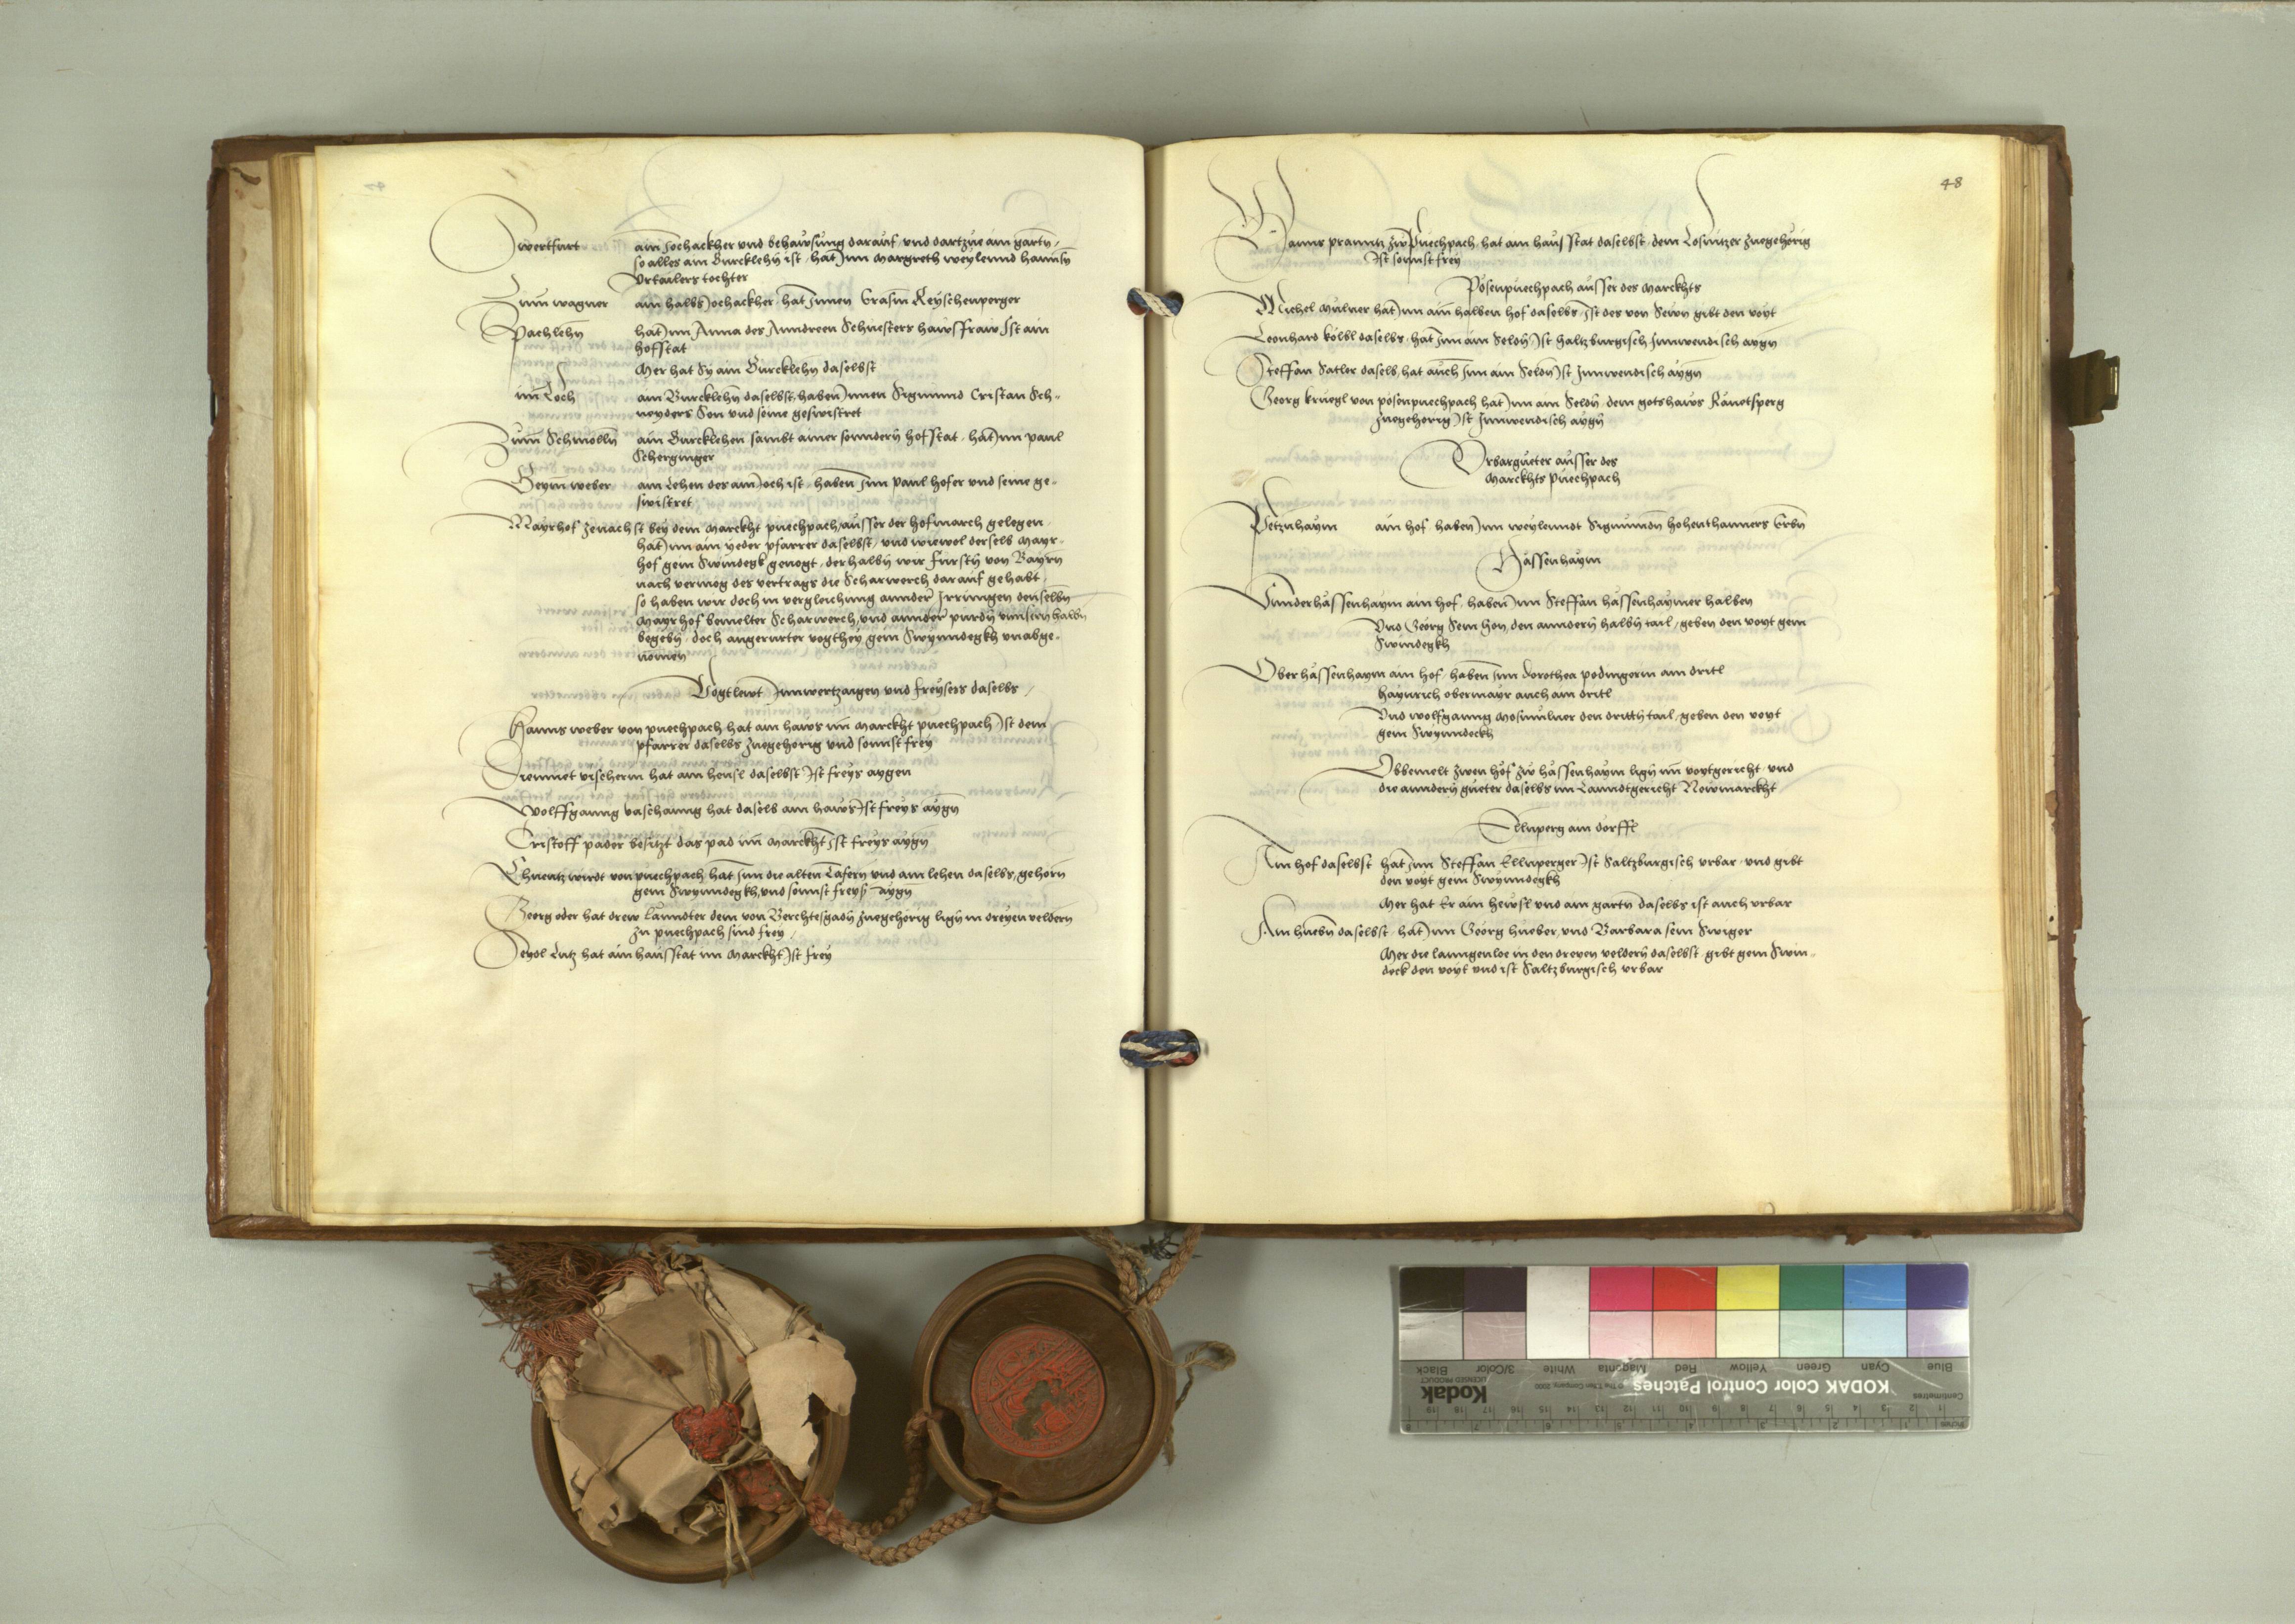 Twertfurt ain Jochackher vnd behawsung darauf, vnd dartzue ain gartn̄,
so alles ain Burcklehn̄ ist, hat Jnn Margreth weylennd hannsn̄
Vrtailers tochter
Zum wagner ain halbs Jochackher, hat Jnnen Erasm̄ Reyschenperger
Pachlehn̄ hat Jnn Anna des Anndreen Schuesters hawsfraw Ist ain
hofstat
Mer hat Sy ain Burcklehn̄ daselbst
im̄ Loch ain Burcklehn̄ daselbst, haben Jnnen Sigmund Cristan Sch-
neyders Son vnd seine geswistret
Zum̄ Schmölln̄ ain Burcklehen sambt ainer sonndern̄ hofstat, hat Jnn paul
Scherginger
Beym̄ weber ain Lehen des ain Joch ist, haben Jnn paul hofer vnd seine ge-
swistret
Mayrhof zenachst bey dem Marckht puechpach, ausser der hofmarch gelegen,
hat Jnn ain yeder pfarrer daselbst, vnd wiewol derselb Mayr-
hof gein Swindegk genogt, derhalbn̄ wir Fürstn̄ von Bayrn̄
nach vermög des vertrags die Scharwerch darauf gehabt,
so haben wir doch in vergleichung annder Jrrungen denselbn̄
Mayrhof bemelter Scharwerch, vnd annder purdn̄ vnnsernhalbn̄
begebn̄, doch angerurter vogthey, gein Swynndegkh vnabge-
nomen
Vogtlewt Jnnwertzaigen vnd freysess daselbs,
Hanns weber von puechpach hat ain haws im̄ Marckht puechpach Ist dem
pfarrer daselbs zuegehörig vnd sonnst frey
Diemuet vischerin hat ain hewsl daselbst Ist freys aygen
Wolffganng vaschanng hat daselb ain haws Ist freys aygn̄
Cristoff pader besitzt das pad im̄ Marckht Ist freys aygn̄
Chuentz wirdt von puechpach, hat Jnn die alten Tafern̄ vnd ain lehen daselbs, gehörn̄
gein Swynndegkh, vnd sonnst freys aygn̄
Georg oder hat drew Lanndter dem von Berchtesgadn̄ zuegehörig lign̄ in dreyen veldern̄
zu puechpach sind frey,
Seydl Lutz hat ain hausstat im Marckht Ist frey
48
Hanns pranntz zw Puechpach, hat ain haus stat daselbst, dem Losnitzer zuegehörig
Ist sonnst frey
Posenpuechpach ausser des Marckhts
Michel Mülner hat Jnn ain̄ halben hof daselbs, Ist des von Sewn gibt den voyt
Leonhard kölbl daselbs, hat Jnn ain Seldn̄ Ist Saltzburgisch Jnnwendisch aygn
Steffan Satler daselb, hat auch Jnn ain Seldn̄ Ist Jnnwendisch aygn
Georg kruegl von posenpuechpach hat Jnn ain Seldn̄, dem gotshaws Ranotsperg
zuegehörig Ist Jnnwendisch aygn̄
Vrbargueter ausser des
Marckhts Puechpach
Petznhaym ain hof, haben Jnn weylenndt Sigmundn̄ hohenthanners Erbn̄
Hässenhaym
Vnnderhässenhaym ain hof, haben Jnn Steffan hässenhaymer halben
Vnd Georg Sein Son, den anndern̄ halbn̄ tail, geben den voyt gein
Swindegkh
Oberhässenhaym ain hof, haben Jnn Dorothea podingerin ain dritl
haynrich obermayr auch ain dritl
Vnd wolfganng Mosmulner den drittn̄ tail, geben den voyt
gein Swynndeckh
Obbemelt zwen höf zw hässenhaym lign̄ im̄ voytgericht, vnd
die anndern̄ gueter daselbs im Lanndtgericht Newmarckht
Ellnperg am dorffe
Am hof daselbst hat Jnn Steffan Ellnperger Ist Saltzburgisch vrbar, vnd gibt
den voyt gein Swynndegkh
Mer hat Er ain hewsl vnd ain gartn̄ daselbs ist auch vrbar
Am huebn̄ daselbst, hat Jnn Georg hueber, vnd Barbara sein Swiger
Mer die lanngenloe in den dreyen veldern̄ daselbst, gibt gein Swin-
deck den voyt vnd ist Saltzburgisch vrbar
KODAK Color Control Patches
Kodak
LICENSED PRODUCT
© The Tiffen Company, 2000
Blue Cyan Green Yellow Red Magenta White 3/Color Black
Centimetres
Inches